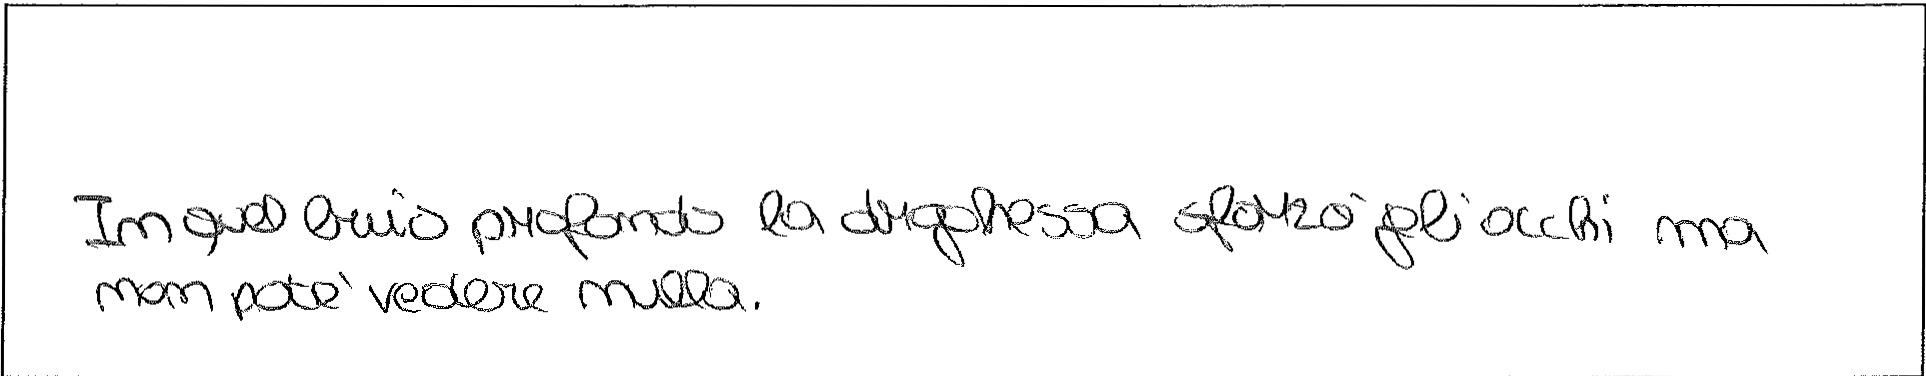 In quel buio profondo la dragonessa sforzò gli occhi ma
non poté vedere nulla.